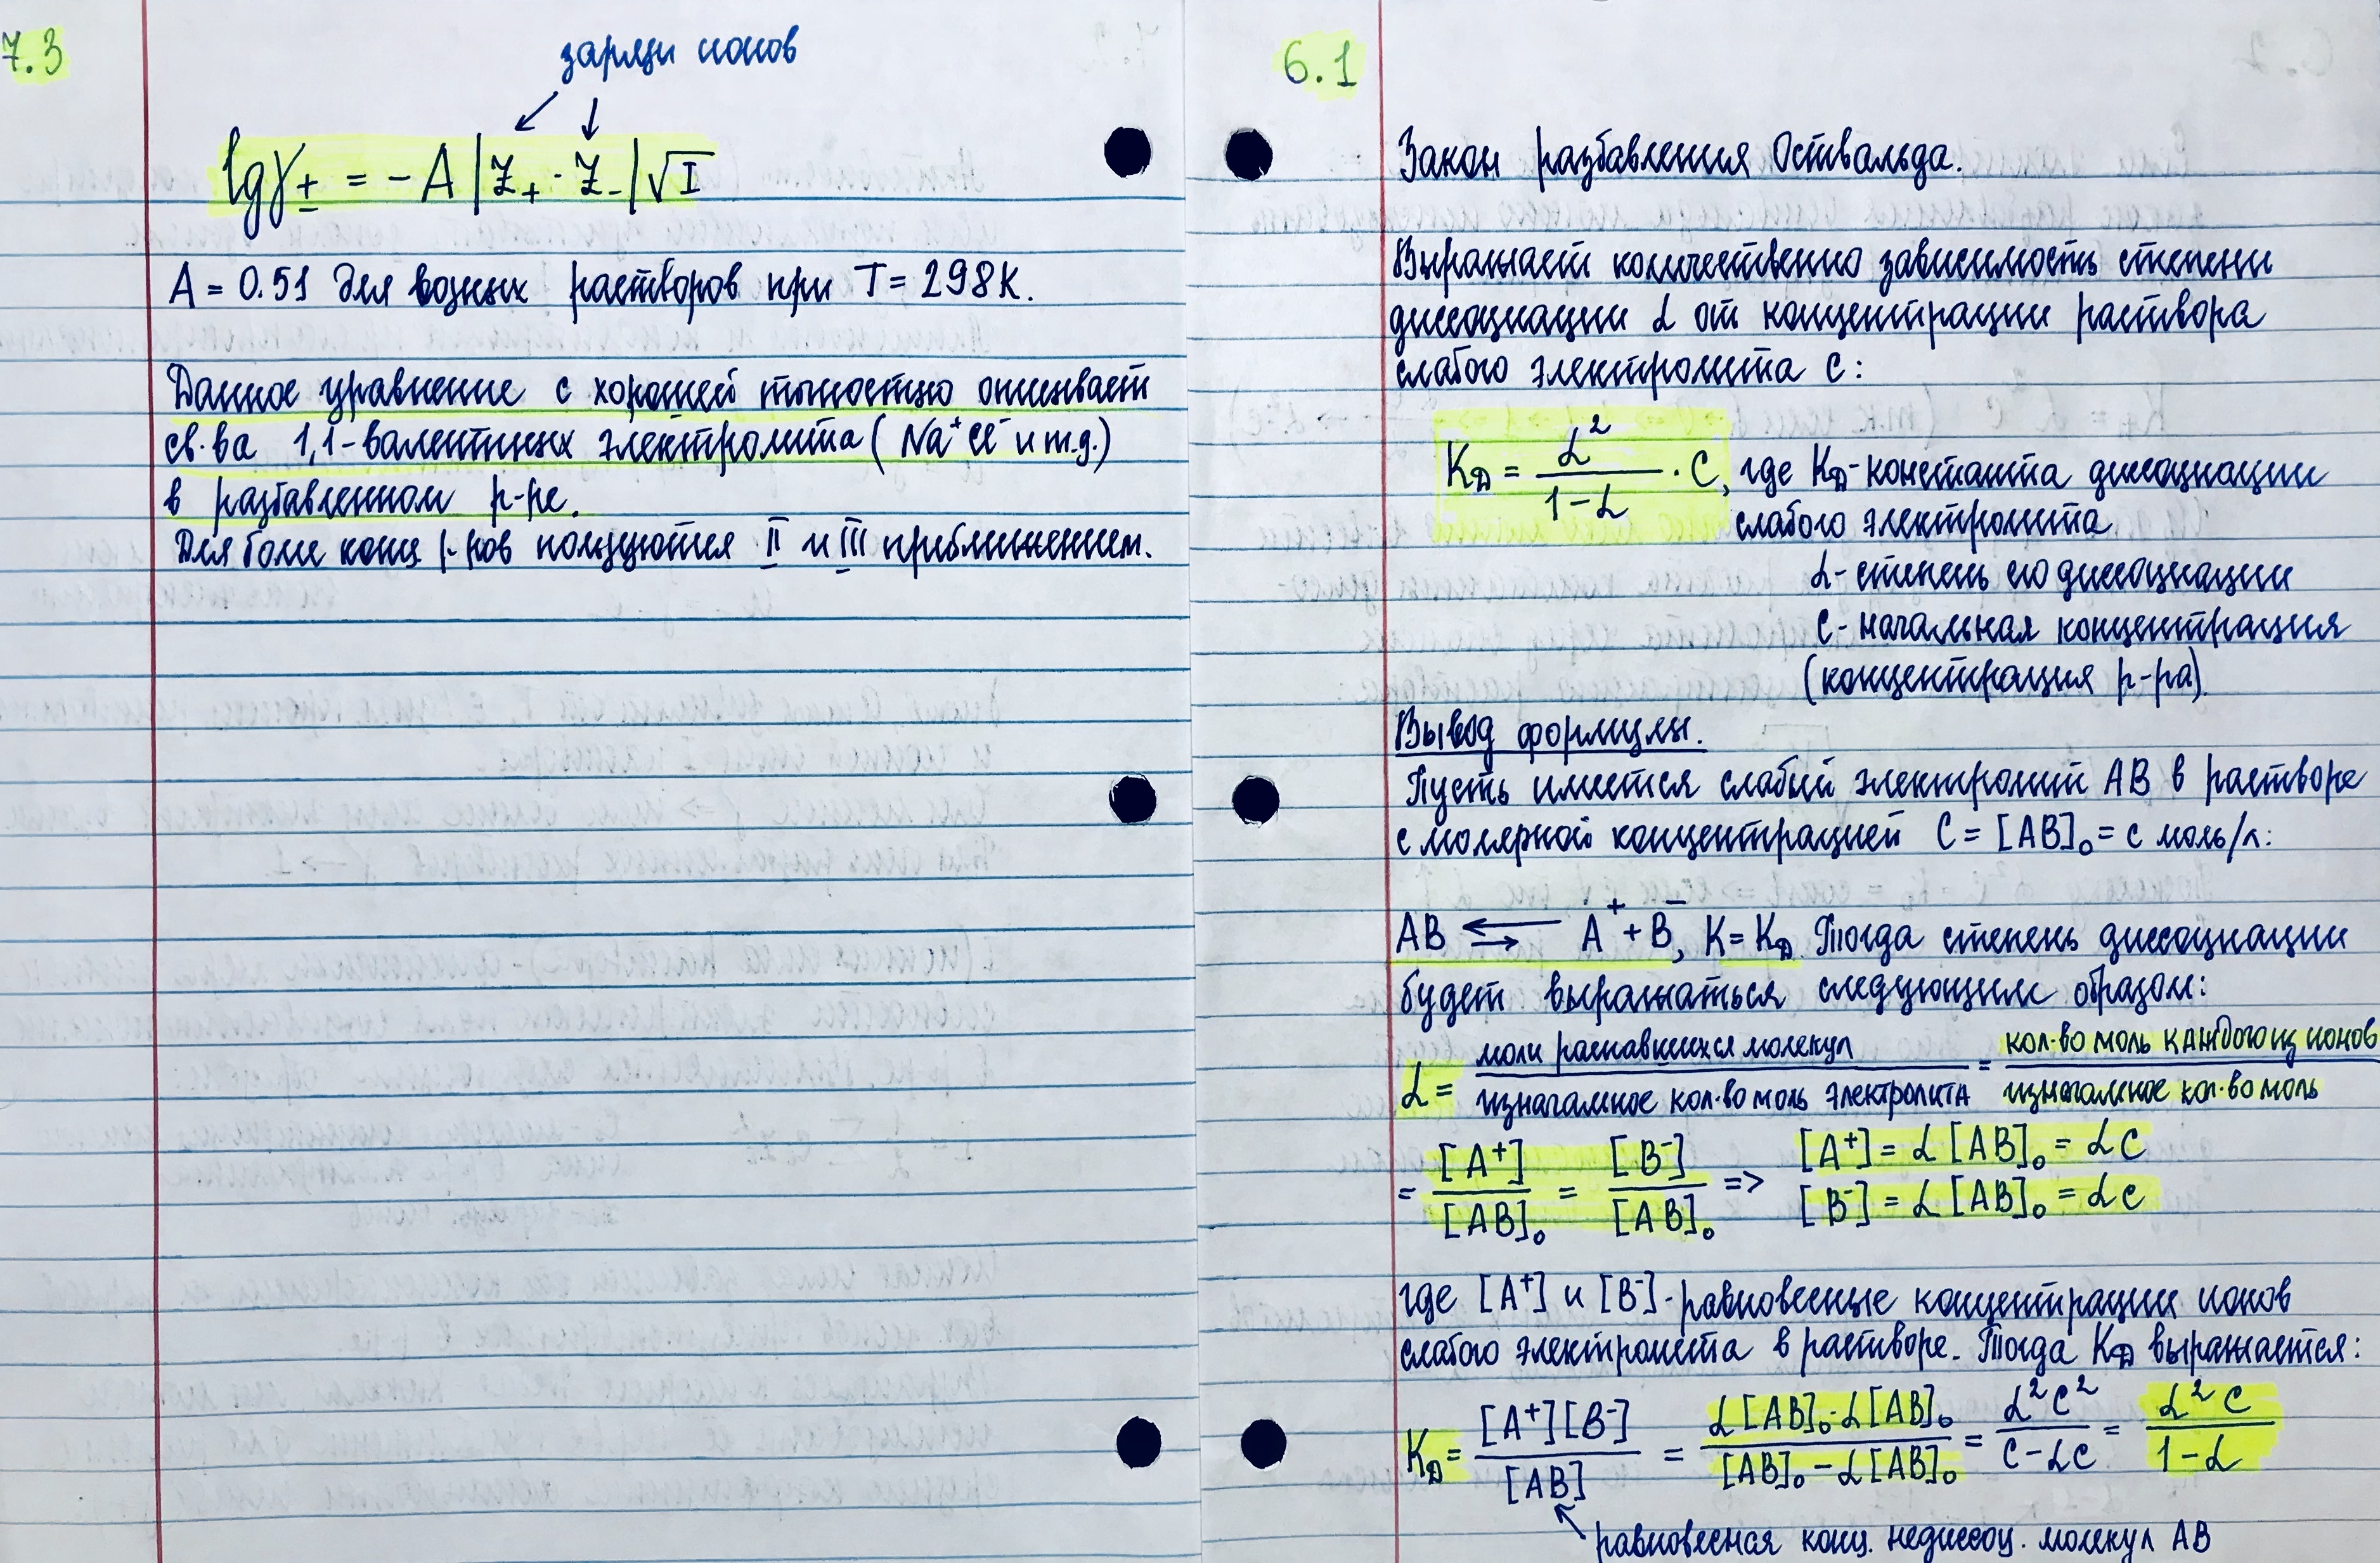 7.3
заряды ионов
lgγ± = - A |Z₊ · Z₋| √I
A = 0.51 для водных растворов при T = 298K.
Данное уравнение с хорошей точностью описывает
св-ва 1,1-валентных электролита ( Na⁺Cl⁻ и т.д.)
в разбавленном р-ре.
Для более конц. р-ров пользуются II и III приближением.
6.1
Закон разбавления Оствальда.
Выражает количественно зависимость степени
диссоциации α от концентрации раствора
слабого электролита С:
K_Д = α² / (1-α) · C, где K_Д - константа диссоциации
слабого электролита
α - степень его диссоциации
С - начальная концентрация
(концентрация р-ра).
Вывод формулы.
Пусть имеется слабый электролит АВ в растворе
с молярной концентрацией С = [AB]₀ = с моль/л:
AB ⇄ A⁺ + B⁻, K = K_Д. Тогда степень диссоциации
будет выражаться следующим образом:
α = моли распавшихся молекул / изначальное кол-во моль электролита = кол-во моль каждого из ионов / изначальное кол-во моль
= [A⁺] / [AB]₀ = [B⁻] / [AB]₀ => [A⁺] = α [AB]₀ = αC
[B⁻] = α [AB]₀ = αC
где [A⁺] и [B⁻] - равновесные концентрации ионов
слабого электролита в растворе. Тогда K_Д выражается:
K_Д = [A⁺][B⁻] / [AB] = α[AB]₀·α[AB]₀ / [AB]₀ - α[AB]₀ = α²C² / C - αC = α²C / 1-α
равновесная конц. недиссоц. молекул АВ